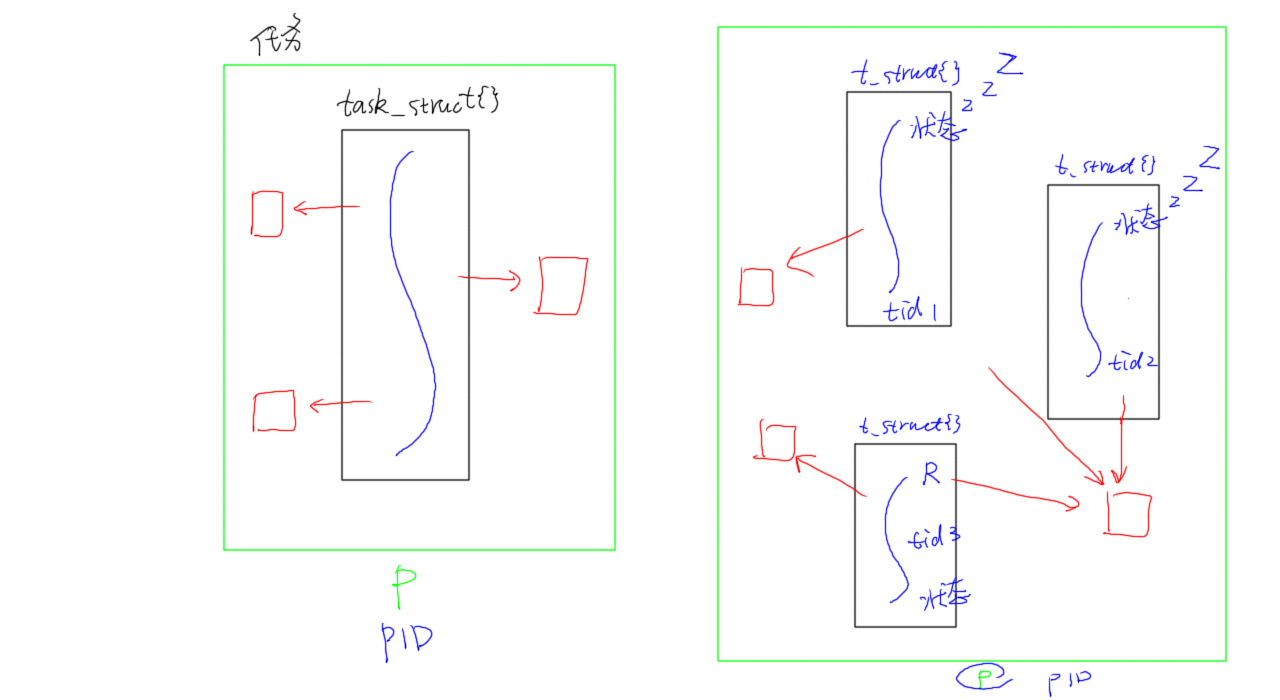 任务
task_struct{}
P
PID
t_struct{}
状态 z z Z
tid1
t_struct{}
状态 z z Z
tid2
t_struct{}
R
tid3
状态
P PID